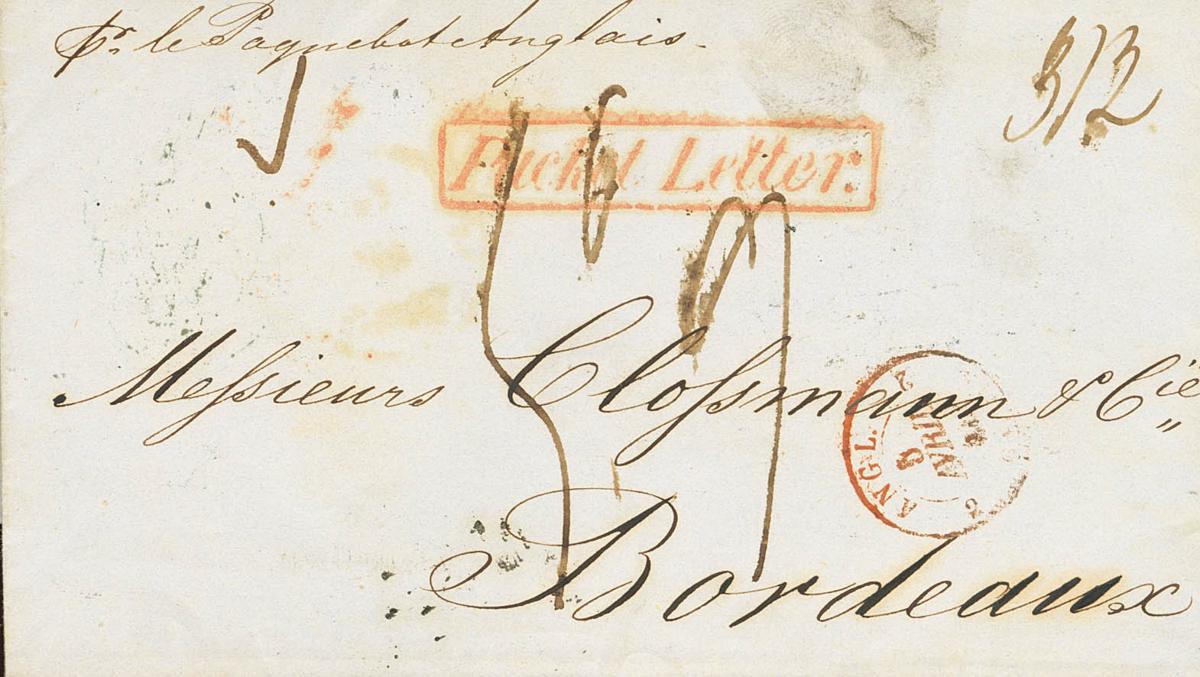 pr. le Paquebot Anglais.
3/2
Packet Letter.
Messieurs Cloſsmann & Cie
ANGL.
Bordeaux